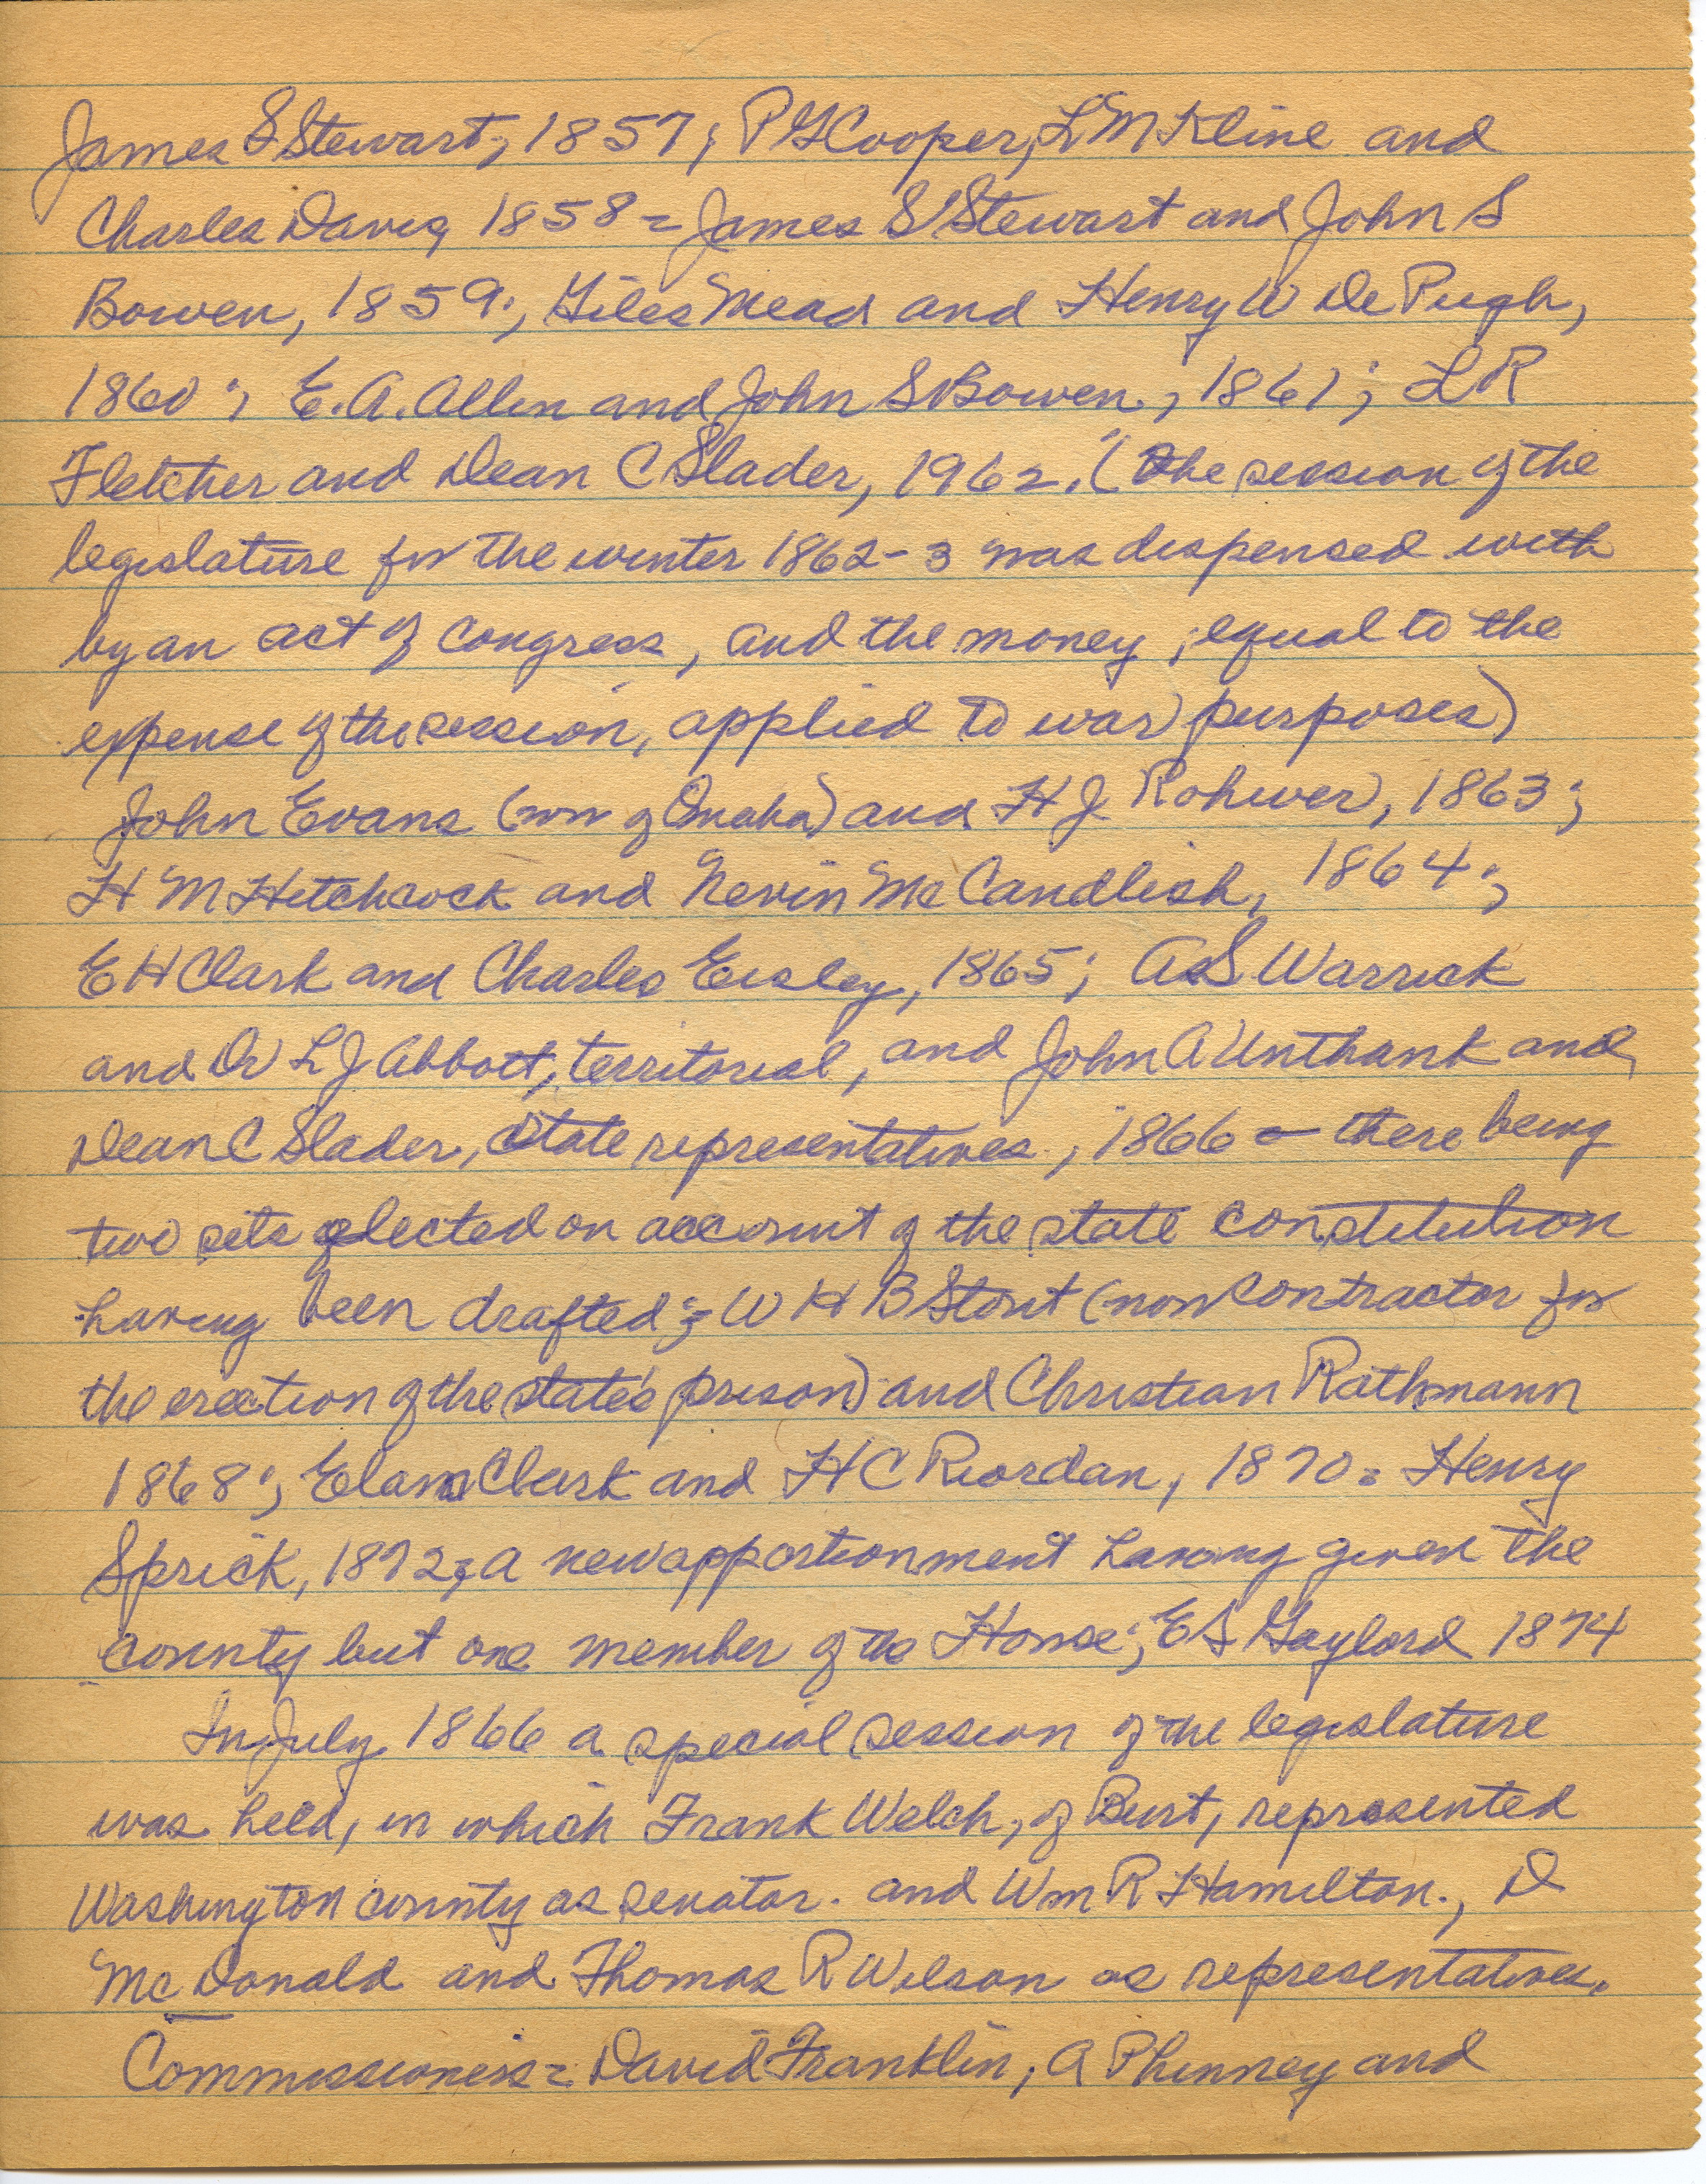 James S Stewart, 1857; P G Cooper, L M Kline and
Charles Davis, 1858 = James S Stewart and John S
Bowen, 1859; Giles Mead and Henry W De Pugh,
1860; E. A. Allen and John S Bowen, 1861; L R
Fletcher and Dean C Slader, 1962. (The session of the
legislature for the winter 1862-3 was dispensed with
by an act of Congress, and the money, equal to the
expense of the session, applied to war purposes)
John Evans (now of Omaha) and H J Rohwer, 1863;
H M Hitchcock and Nevin McCandlish, 1864;
E H Clark and Charles Eisley, 1865; A S Warrick
and Dr L J Abbott, territorial, and John A Unthank and
Dean C Slader, State representatives, 1866 - there being
two sets elected on account of the state constitution
having been drafted; W H B Stout (now contractor for
the erection of the state's prison) and Christian Rathmann
1868; Elam Clark and H C Riordan, 1870 = Henry
Sprick, 1872; a new apportionment having given the
county but one member of the House; E S Gaylord 1874
In July 1866 a special session of the legislature
was held, in which Frank Welch, of Burt, represented
Washington county as senator. and Wm R Hamilton., D
McDonald and Thomas R Wilson as representatives.
Commissioners = David Franklin, A Phinney and